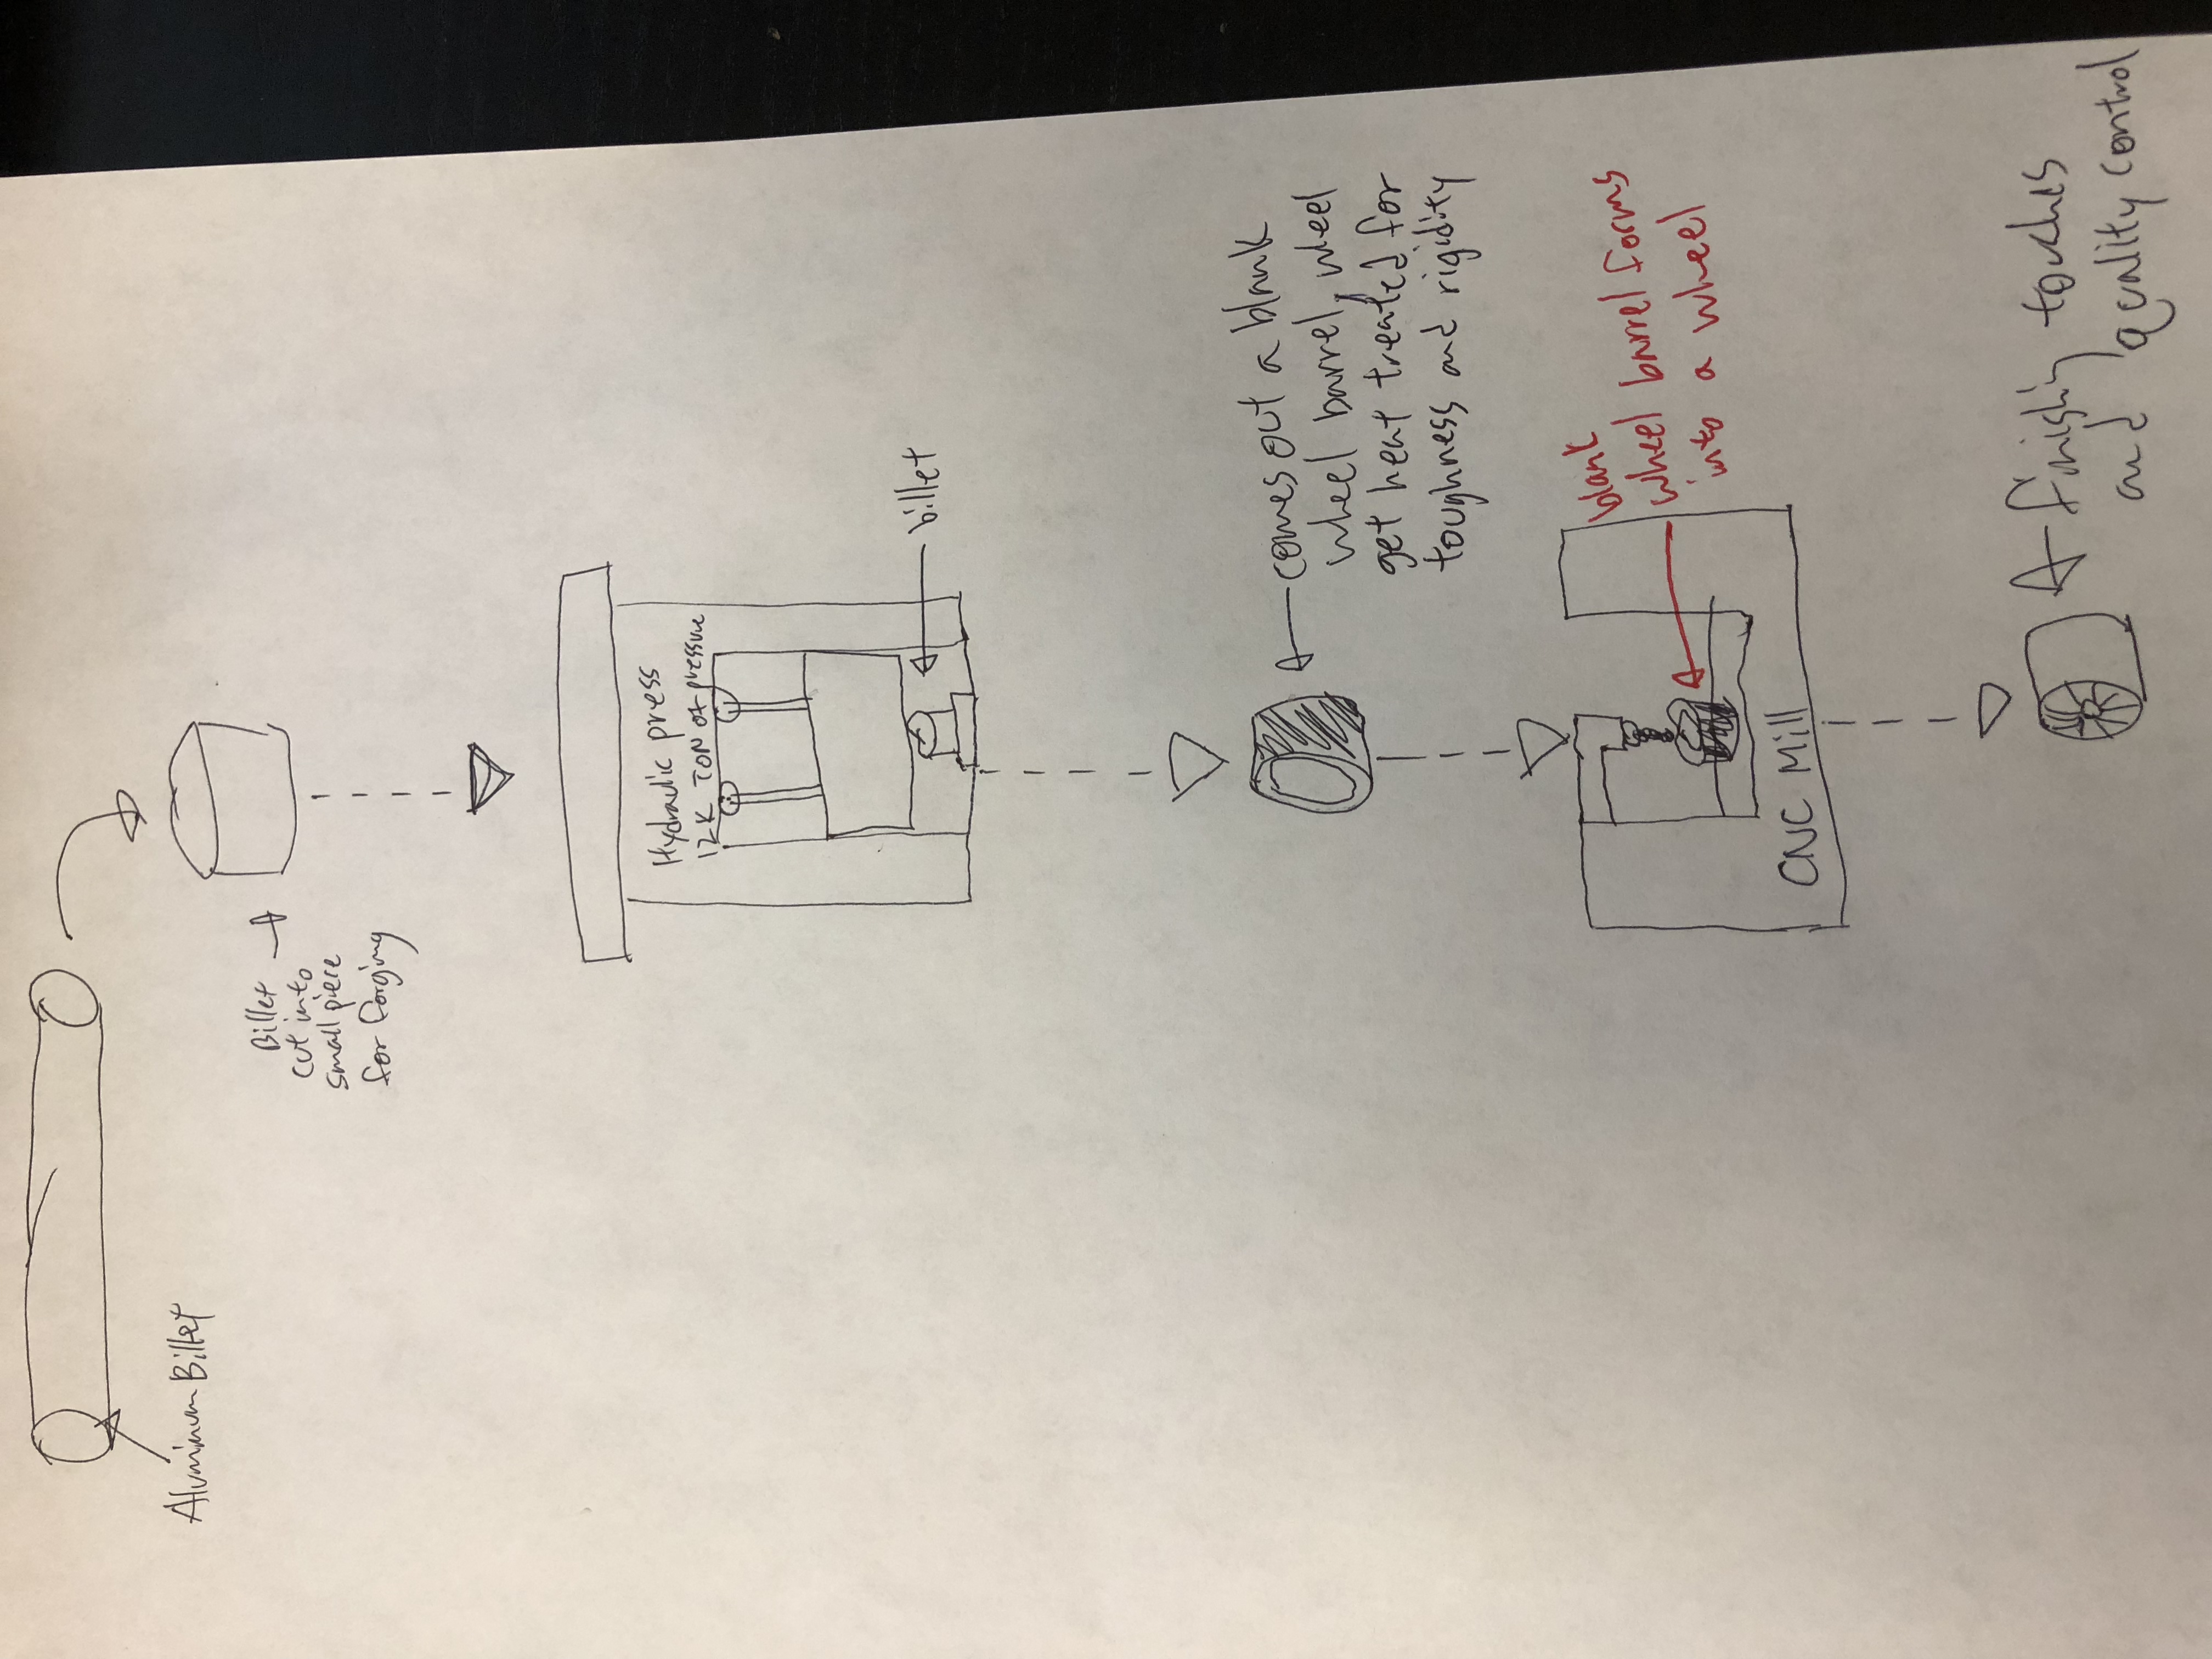 Aluminum Billet
Billet
cut into
small piece
for forging
Hydraulic press
12K TON of pressure
billet
comes out a blank
wheel barrel, wheel
get heat treated for
toughness and rigidity
blank
wheel barrel forms
into a wheel
CNC Mill
finishing touches
and quality control